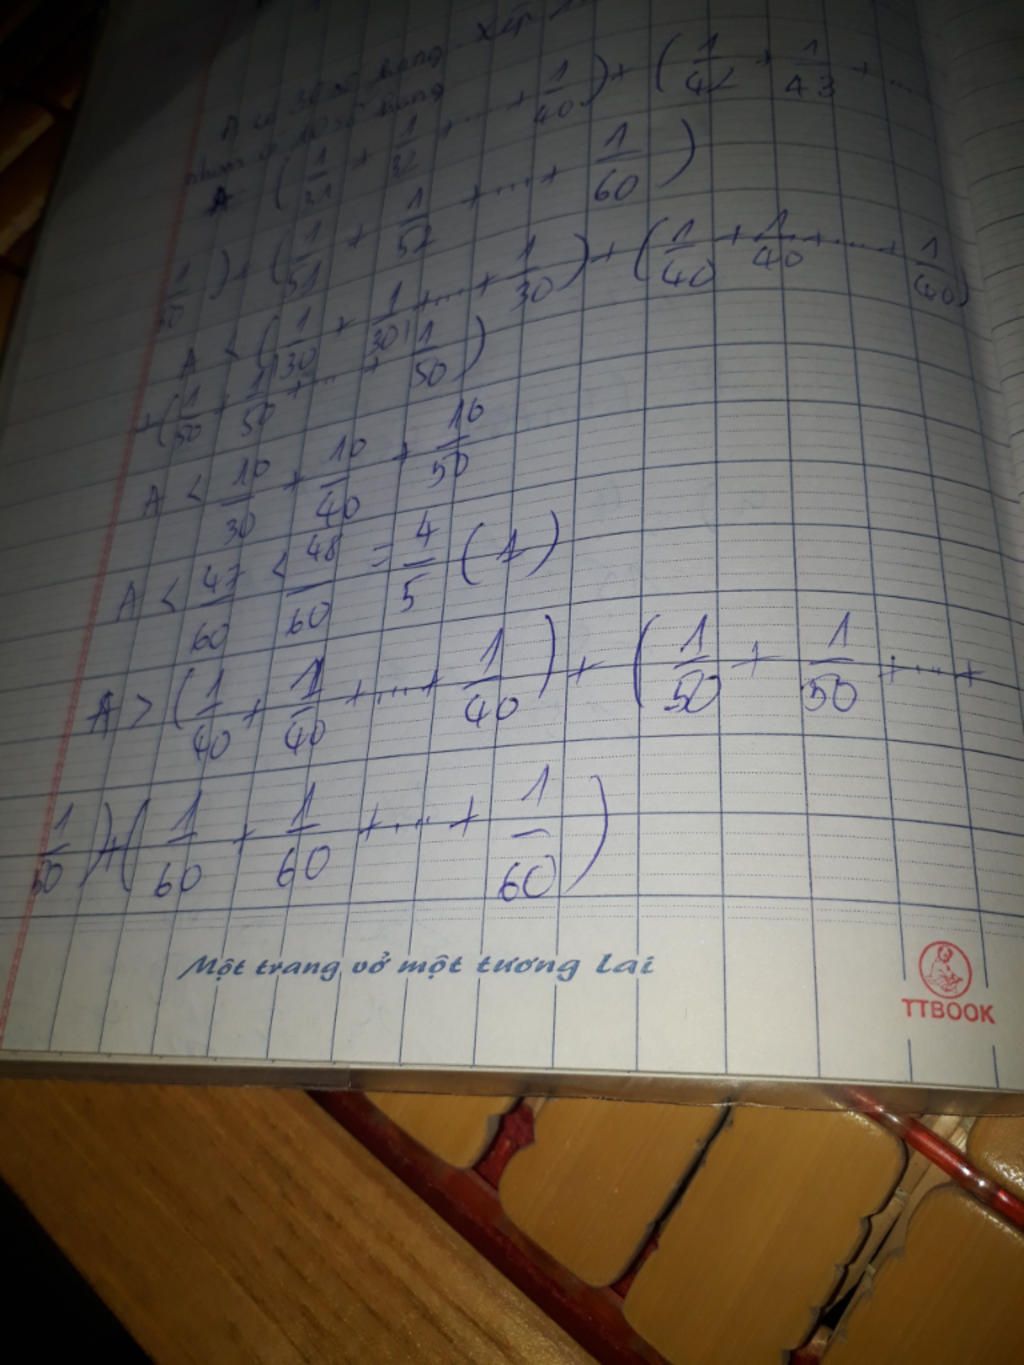 A có 30 số hạng. Xếp
nhóm có 10 số hạng
A (1/31 + 1/32 + ... + 1/40) + (1/42 + 1/43 + ...
1/50) + (1/51 + 1/52 + ... + 1/60)
A < (1/30 + 1/30 + ... + 1/30) + (1/40 + 1/40 + ... + 1/40)
+ (1/50 + 1/50 + ... + 1/50)
A < 10/30 + 10/40 + 10/50
A < 47/60 < 48/60 = 4/5 (1)
A > (1/40 + 1/40 + ... + 1/40) + (1/50 + 1/50 + ... +
1/50) + (1/60 + 1/60 + ... + 1/60)
Một trang vở một tương lai
TTBOOK